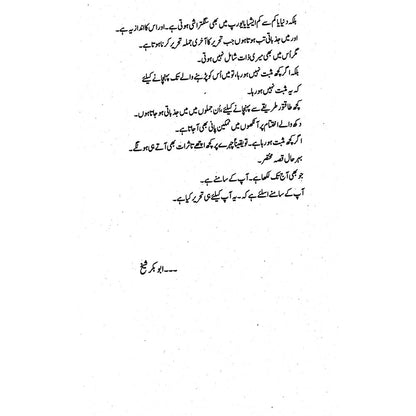 بلکہ دنیا یا کم سے کم ایشیا یا یورپ میں بھی سنگتراشی ہوتی ہے۔ اور اس کا انداز یہ ہے۔
اور میں جذباتی تب ہوتا ہوں جب تحریر کا آخری جملہ تحریر کرنا ہوتا ہے۔
مگر اُس میں بھی میری ذات شامل نہیں ہوتی۔
بلکہ اگر کچھ مثبت نہیں ہو رہا، تو میں اُس کو پڑھنے والے تک پہنچانے کیلئے
کہ یہ مثبت نہیں ہو رہا۔
کچھ طاقتور طریقے سے پہنچانے کیلئے، اُن جملوں میں میں جذباتی ہو جاتا ہوں۔
دکھ والے اختتام پر آنکھوں میں نمکین پانی بھی آ جاتا ہے۔
اگر کچھ مثبت ہو رہا ہے۔ تو یقیناً چہرے پر کچھ اچھے تاثرات بھی آتے ہی ہونگے۔
بہرحال قصہ مختصر۔
جو بھی آج تک لکھا ہے۔ آپ کے سامنے ہے۔
آپ کے سامنے اسلئے ہے کہ۔ یہ آپ کیلئے ہی تحریر کیا ہے۔
۔۔۔ ابو بکر شیخ